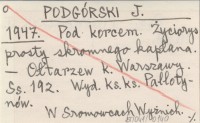 PODGÓRSKI J.
1947. Pod korcem. Życiorys
prosty skromnego kapłana.
— Ołtarzew k. Warszawy.
Ss. 192. Wyd. ks. ks. Palloty-
nów.
W Sromowcach Wyżnich.